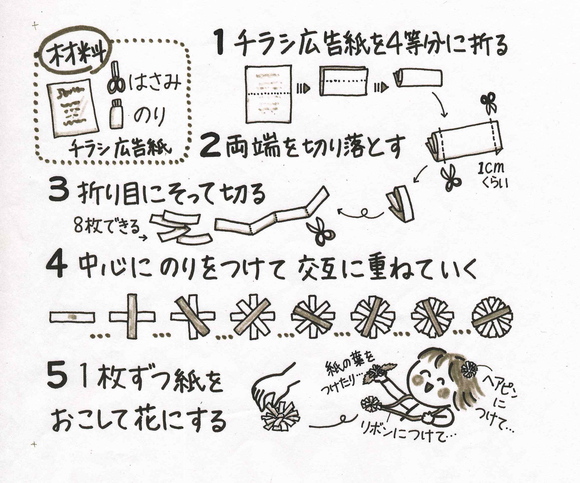 材料
はさみ
のり
チラシ広告紙
1 チラシ広告紙を4等分に折る
2 両端を切り落とす
1cm
くらい
3 折り目にそって切る
8枚できる
4 中心にのりをつけて 交互に重ねていく
5 1枚ずつ紙を
おこして花にする
紙の葉を
つけたり…
ヘアピン
に
つけて…
リボンにつけて…